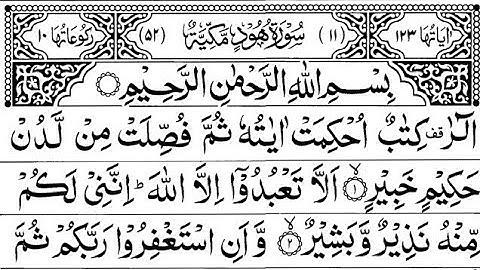 اٰیَاتُهَا ١٢٣ (١١) سُوْرَةُ هُوْدٍ مَّكِّیَّةٌ (٥٢) رُكُوْعَاتُهَا ١٠
بِسْمِ اللّٰهِ الرَّحْمٰنِ الرَّحِیْمِ
الٓرٰ قف كِتٰبٌ اُحْكِمَتْ اٰیٰتُهٗ ثُمَّ فُصِّلَتْ مِنْ لَّدُنْ
حَكِیْمٍ خَبِیْرٍ ۙ﴿١﴾ اَلَّا تَعْبُدُوْۤا اِلَّا اللّٰهَ ؕ اِنَّنِیْ لَكُمْ
مِّنْهُ نَذِیْرٌ وَّ بَشِیْرٌ ۙ﴿٢﴾ وَّ اَنِ اسْتَغْفِرُوْا رَبَّكُمْ ثُمَّ